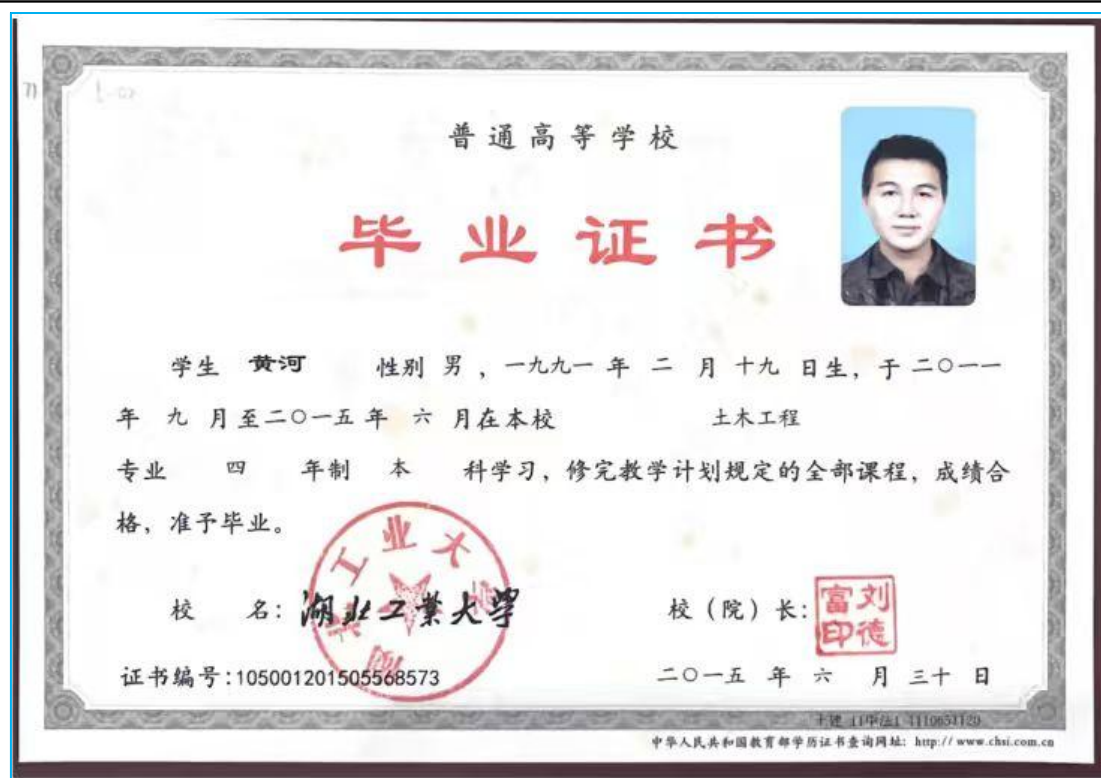 普通高等学校
毕业证书
学生 黄河 性别 男 ，一九九一 年 二 月 十九 日生，于二〇一一
年 九 月至二〇一五年 六 月在本校 土木工程
专业 四 年制 本 科学习，修完教学计划规定的全部课程，成绩合
格，准予毕业。
校 名：湖北工業大學
湖北工业大学
校（院）长：
刘德富印
证书编号:105001201505568573
二〇一五 年 六 月 三十 日
中华人民共和国教育部学历证书查询网址: http://www.chsi.com.cn